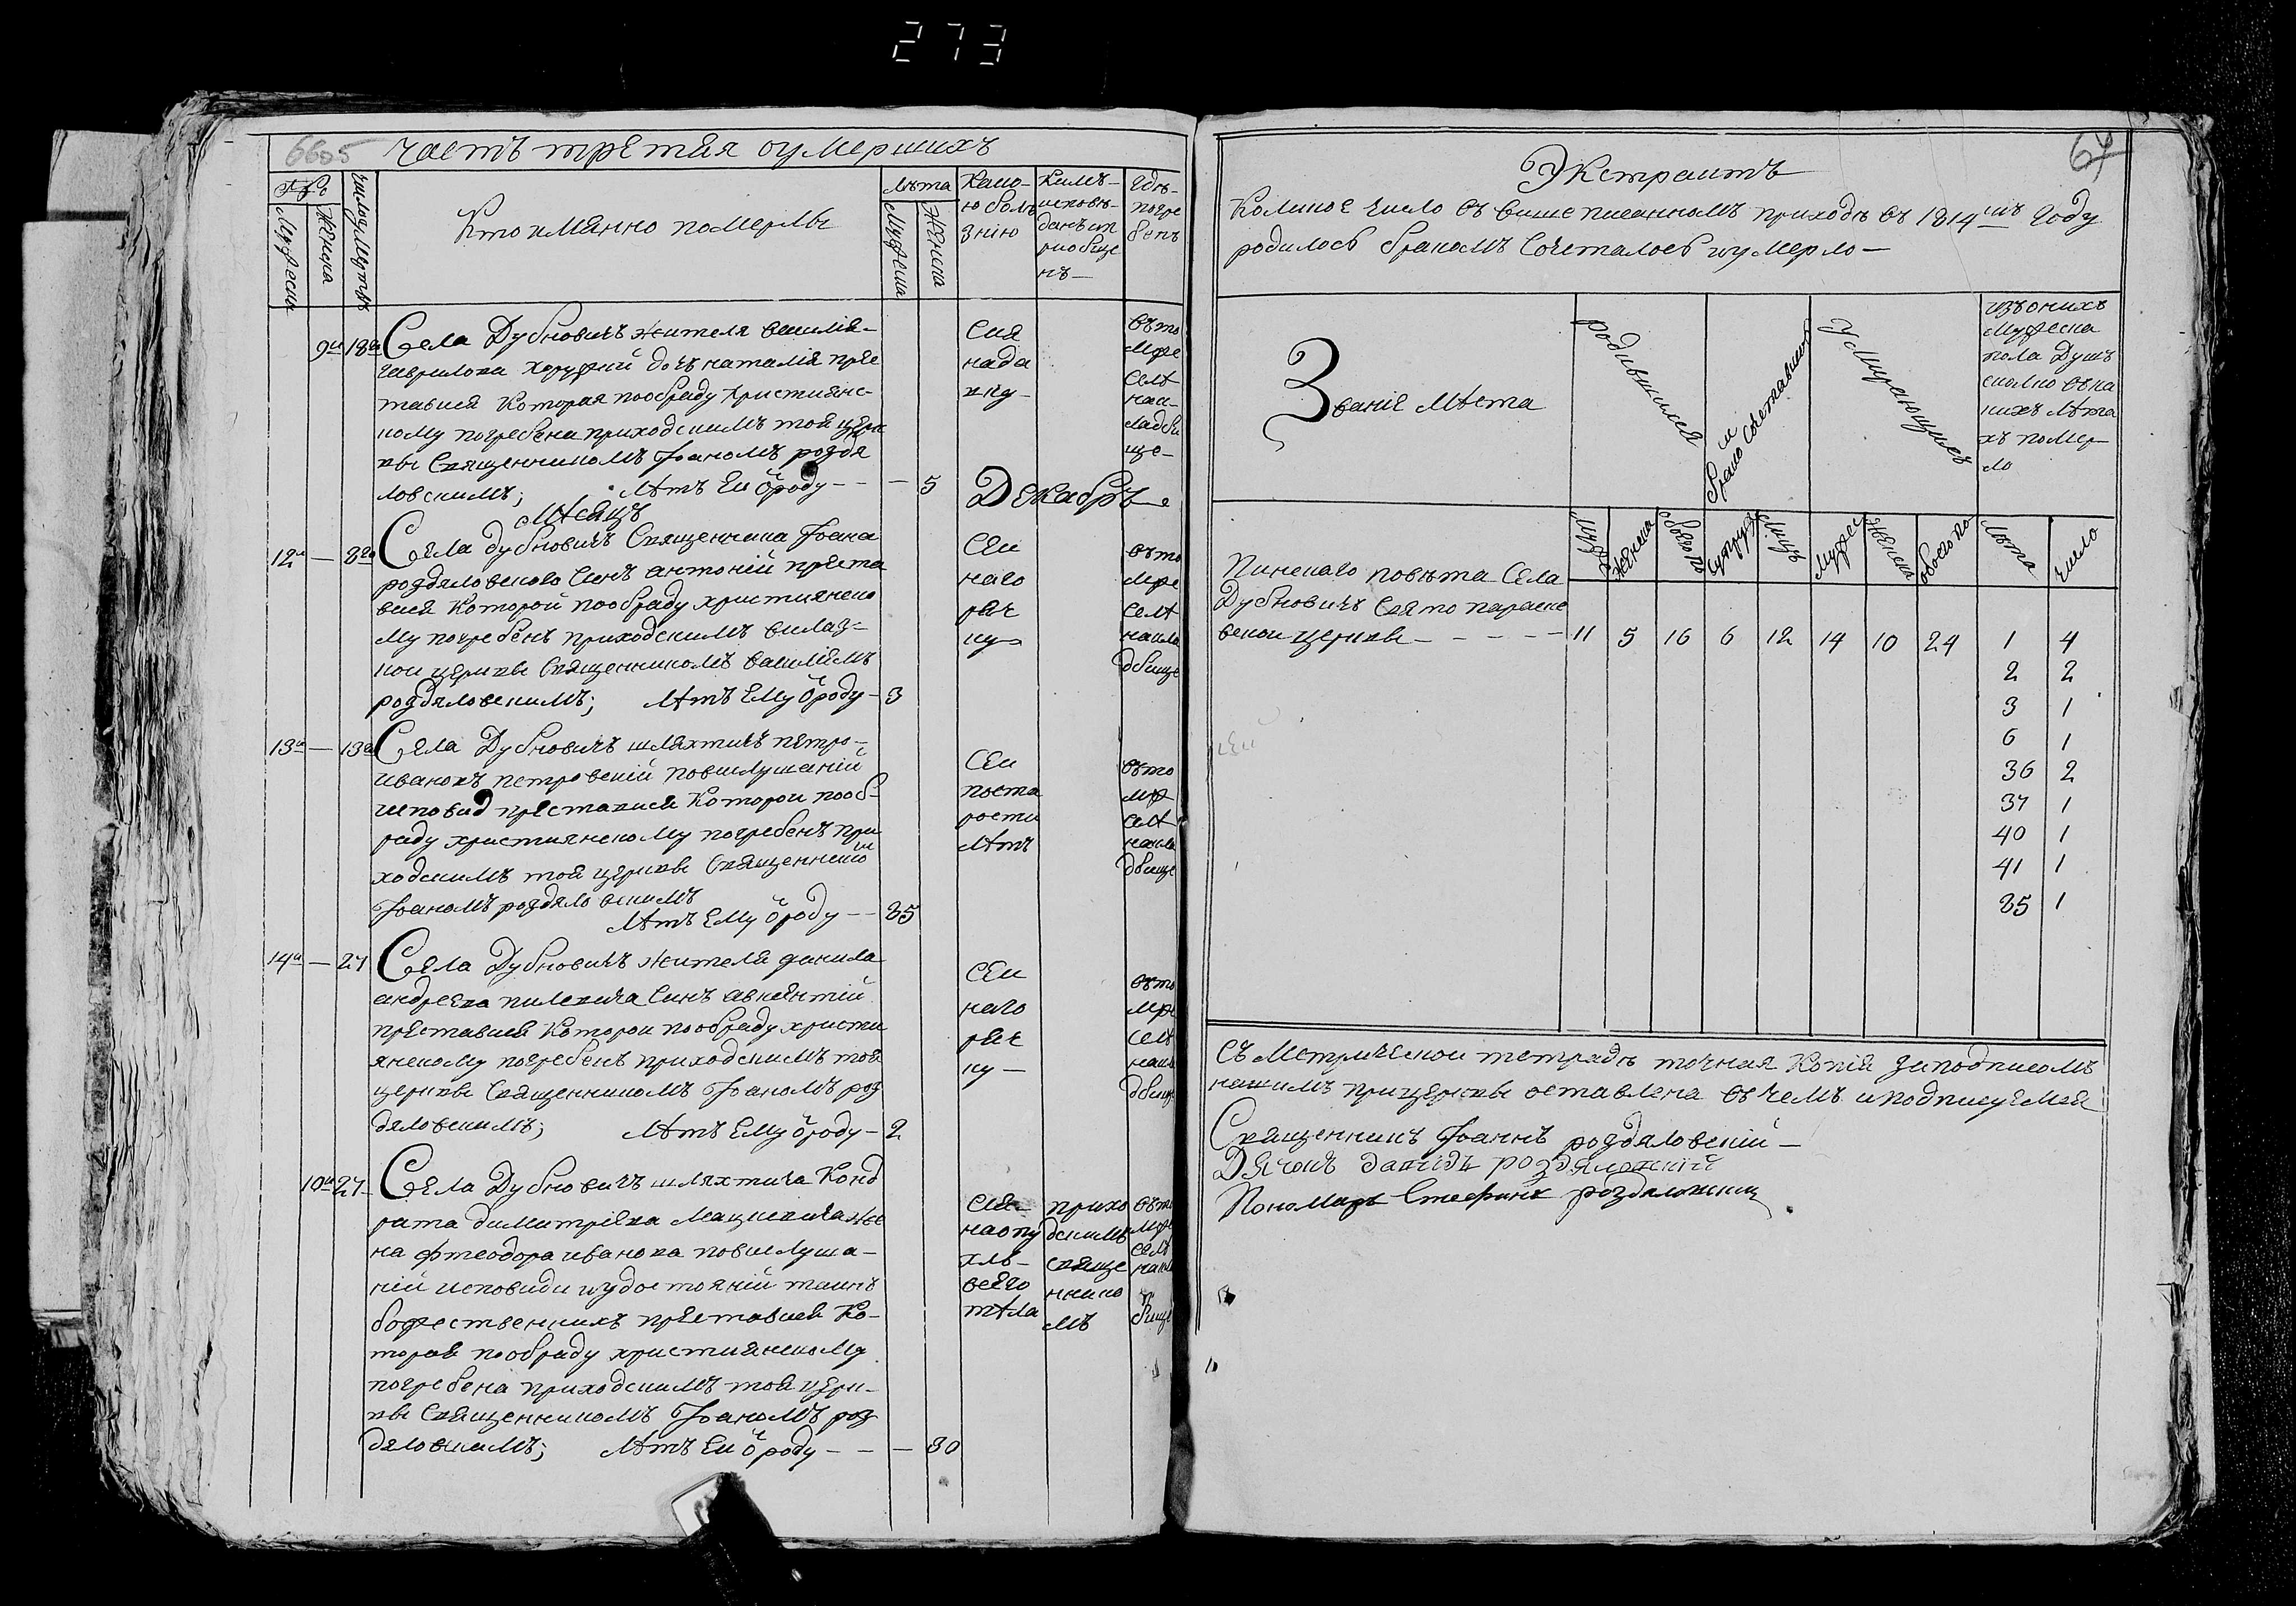 273
6605 Часть третия оумершихъ
№
Мужескъ
Женска
Число умертвъ
Кто имянно померлы
лѣта
Мужеска
Женска
Како-
ю болѣ
знію
Кимъ-
исповѣ-
данъ ип
риобще
нъ-
Гдѣ-
погре
бенъ
9а 18а Села Дубновичъ жителя василія-
гаврилова хоружий дочь наталія пре
тавися Которая пообраду християнс-
кому погребена приходскимъ тоя церк
квы Священникомъ Іоаномъ роздя
ловскимъ; лѣтъ Еи ѿроду - - - 5
Сия
нада
въто
мже
селѣ
Мѣсяцъ Декабрь
12а - 8го Села дубновичъ Священника Іоана
роздяловского Синъ антоній преста
вися Которой пообраду християнско
му погребенъ приходскимъ
кои церкви Священникомъ василіемъ
роздяловскимъ; лѣтъ Ему ѿроду - 3
Сеи
наго
ряч
ку-
въто
мже
селѣ
накла
дбище
13а - 13а Села Дубновичъ шляхтичъ петро-
ивановъ петровскій повислушаній
исповид преставися Которои пооб-
раду християнскому погребенъ при
ходскимъ тоя церкви Священнико
Іоаномъ роздяловскимъ
лѣтъ Ему ѿроду - - 85
Сеи
поста
рости
лѣтъ
въто
мже
селѣ
накла
дбище
14а - 27 Села Дубновичъ жителя данила
андреева пилевича Синъ авкѣнтій
преставися Которои пообраду христи
янскому погребенъ приходскимъ тоя
церкви Священникомъ Іоаномъ роз
дяловскимъ; лѣтъ Ему ѿроду - 2
Сеи
наго
ряч
ку -
въто
мже
селѣ
накла
дбище
10а 27 Села Дубновичъ шляхтича Конд
рата димитріева Мацкевича же
на фтеодора иванова повислуша-
ній исповиди иудостояній таинъ
божественнихъ преставися Ко-
торая пообраду християнскому
погребена приходскимъ тоя церк-
квы Священникомъ Іоаномъ роз
дяловскимъ; лѣтъ Еи ѿроду - - - 30
Сия
наопу
хлъ-
всего
тѣла
прихо
дскимъ
свяще
ннико
мъ
въто
мже
селѣ
накла
дбище
64
Экстрактъ
Коликое число въ вишеписанномъ приходѣ въ 1814мъ Году
родилось бракомъ Сочеталось иумерло -
Званіе Мѣста
родившися
бракосочетавших
Умирающих
изъоныхъ
мужеска
пола Душъ
сколко въка
кихъ лѣта
хъ помер-
ло
Мужес
женска
обоего по
супруж
лицъ
Мужес
женска
обоего по
лѣта
число
Пинскаго повѣта Села
Дубновичъ Свято параске
вскои церкви - - - - - 11 5 16 6 12 14 10 24 1 4
2 2
3 1
6 1
36 2
37 1
40 1
41 1
85 1
Съ Метрической тетрадѣ точная Копія заподписомъ
нашимъ прицеркви оставлена въ чемъ иподписуемся
Священникъ Іоаннъ роздяловскій -
Дячокъ давидъ роздяловскій
Пономарь Стефанъ роздяловский